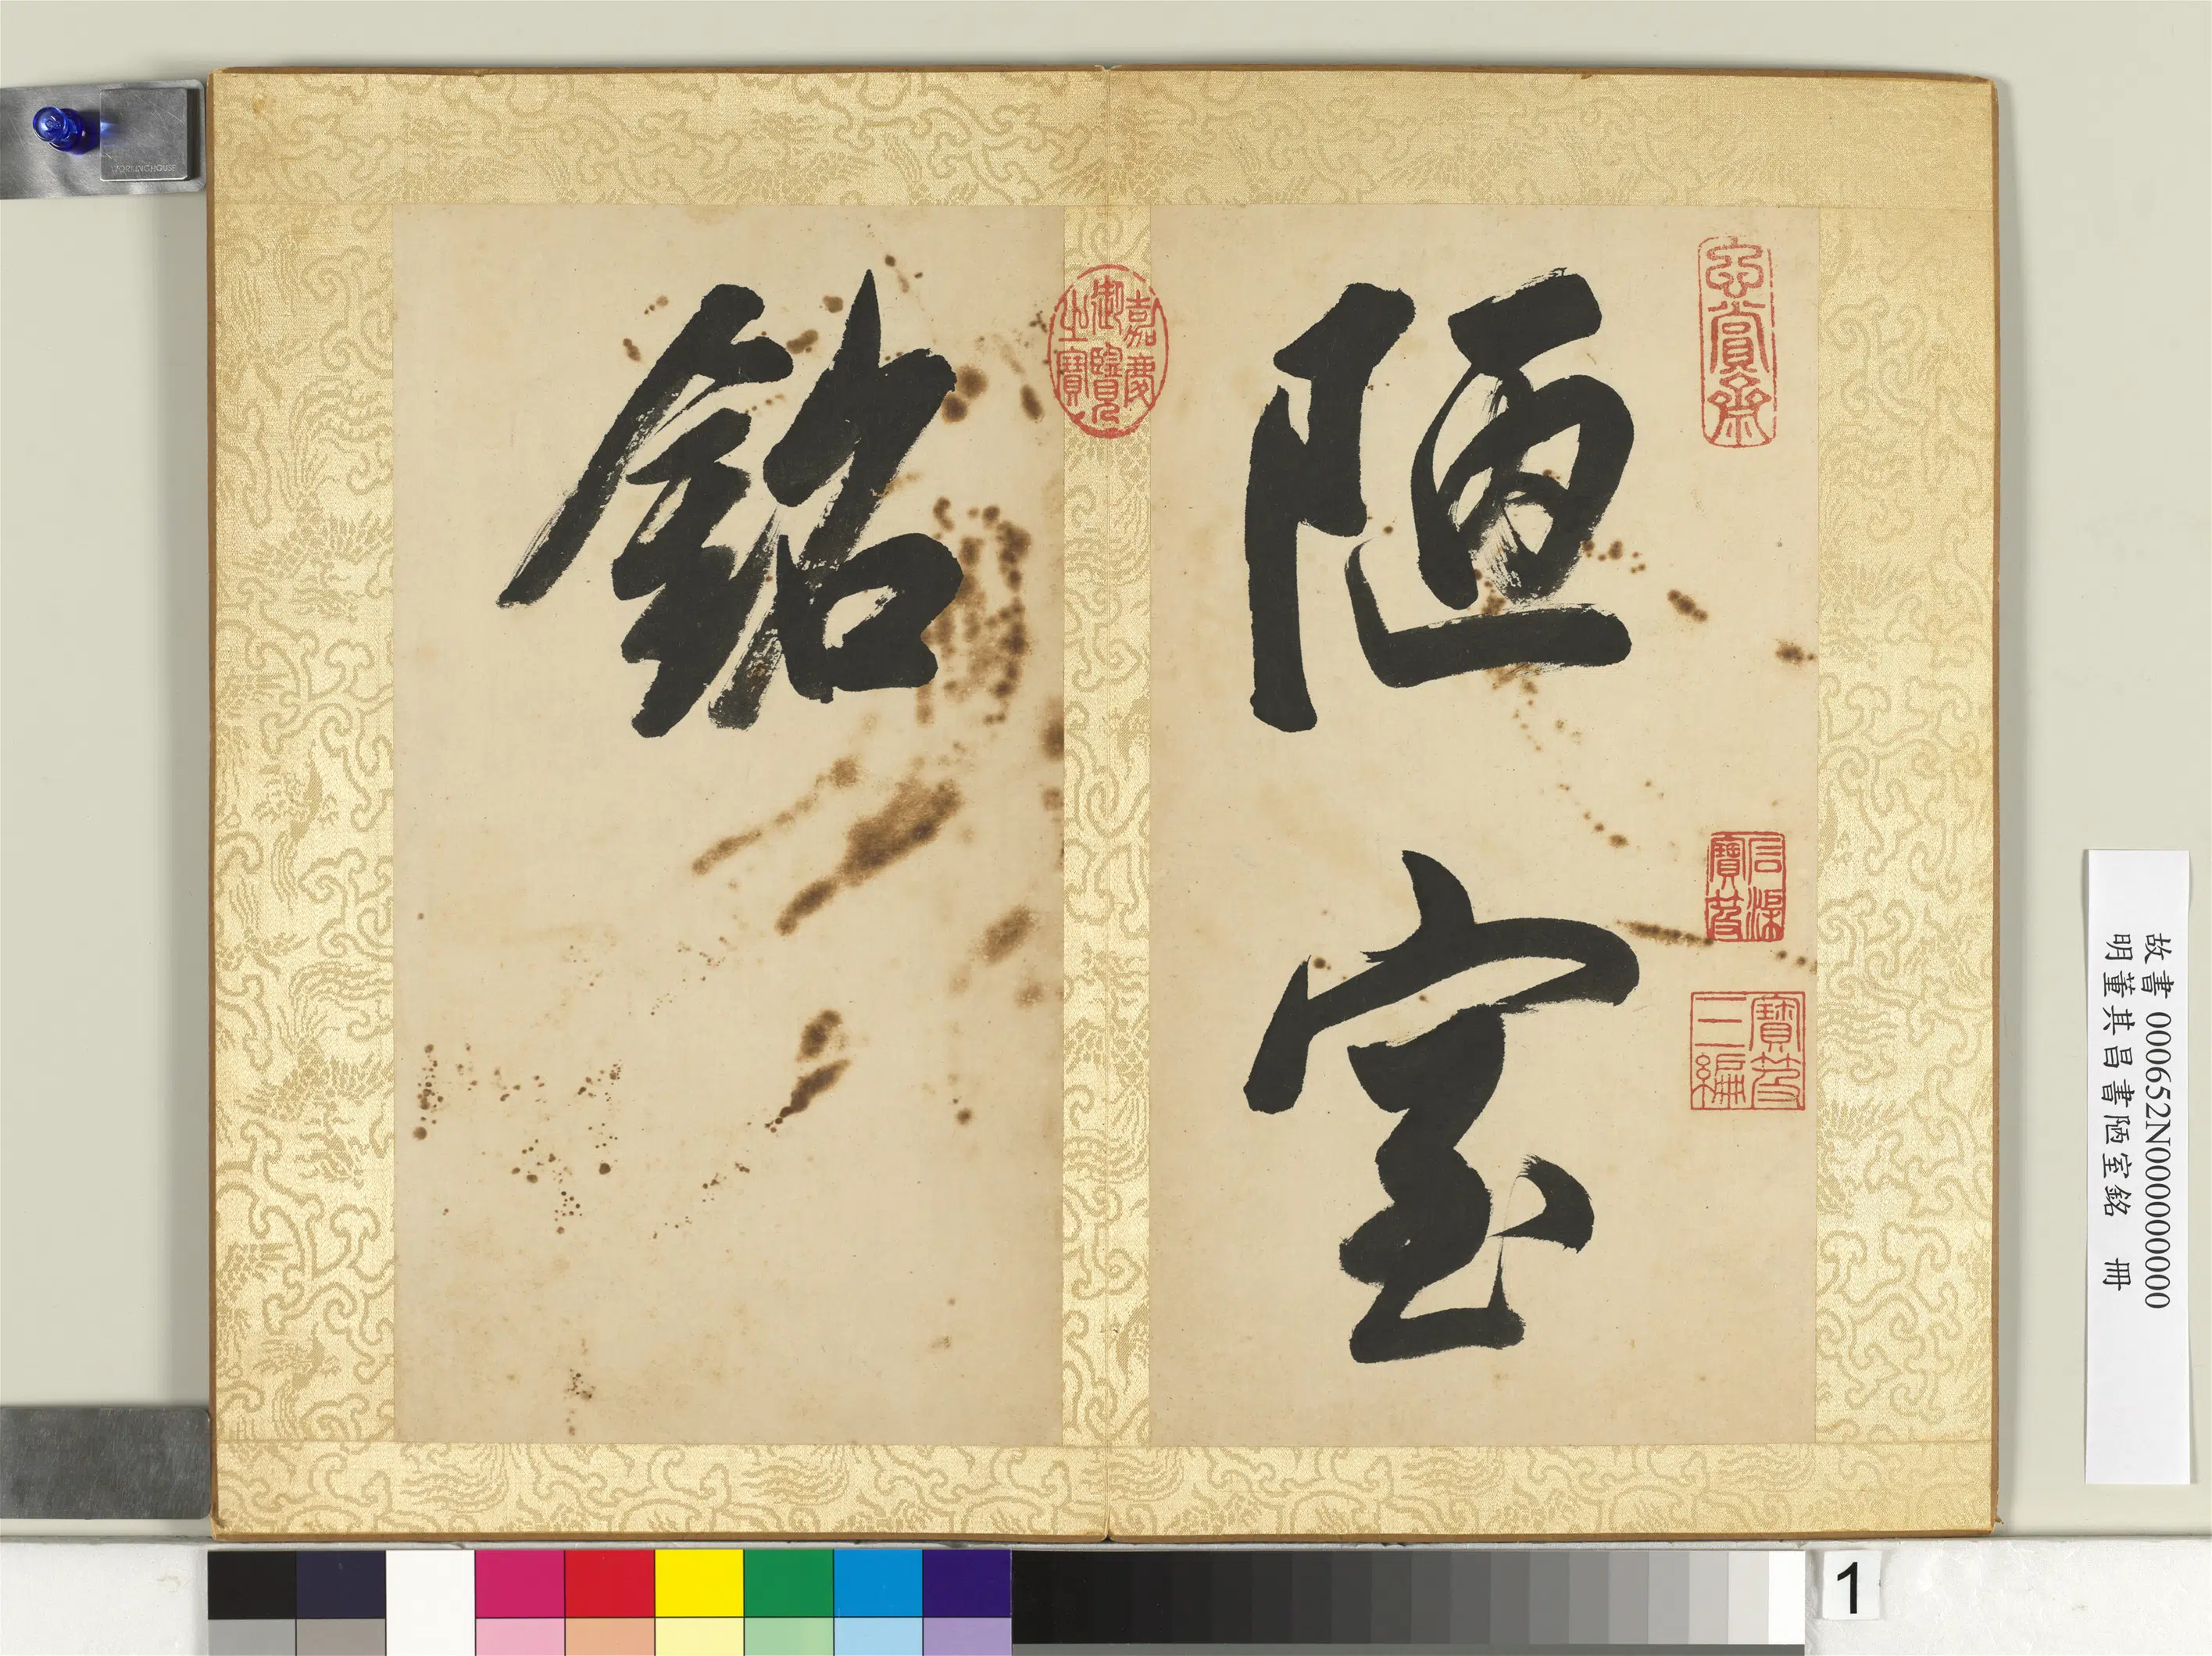 陋室
銘
嘉慶
御覽
之寶
賞齋
寶笈
三編
故書 000652N000000000
明董其昌書陋室銘 冊
1